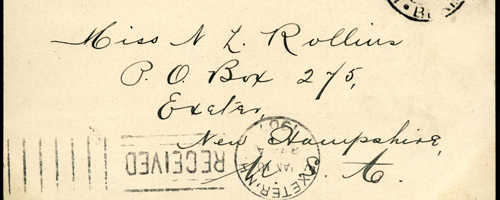 Miss N L. Rollins
P. O. Box 275,
Exeter,
New Hampshire,
U. S. A.
RECEIVED
EXETER, N.H.